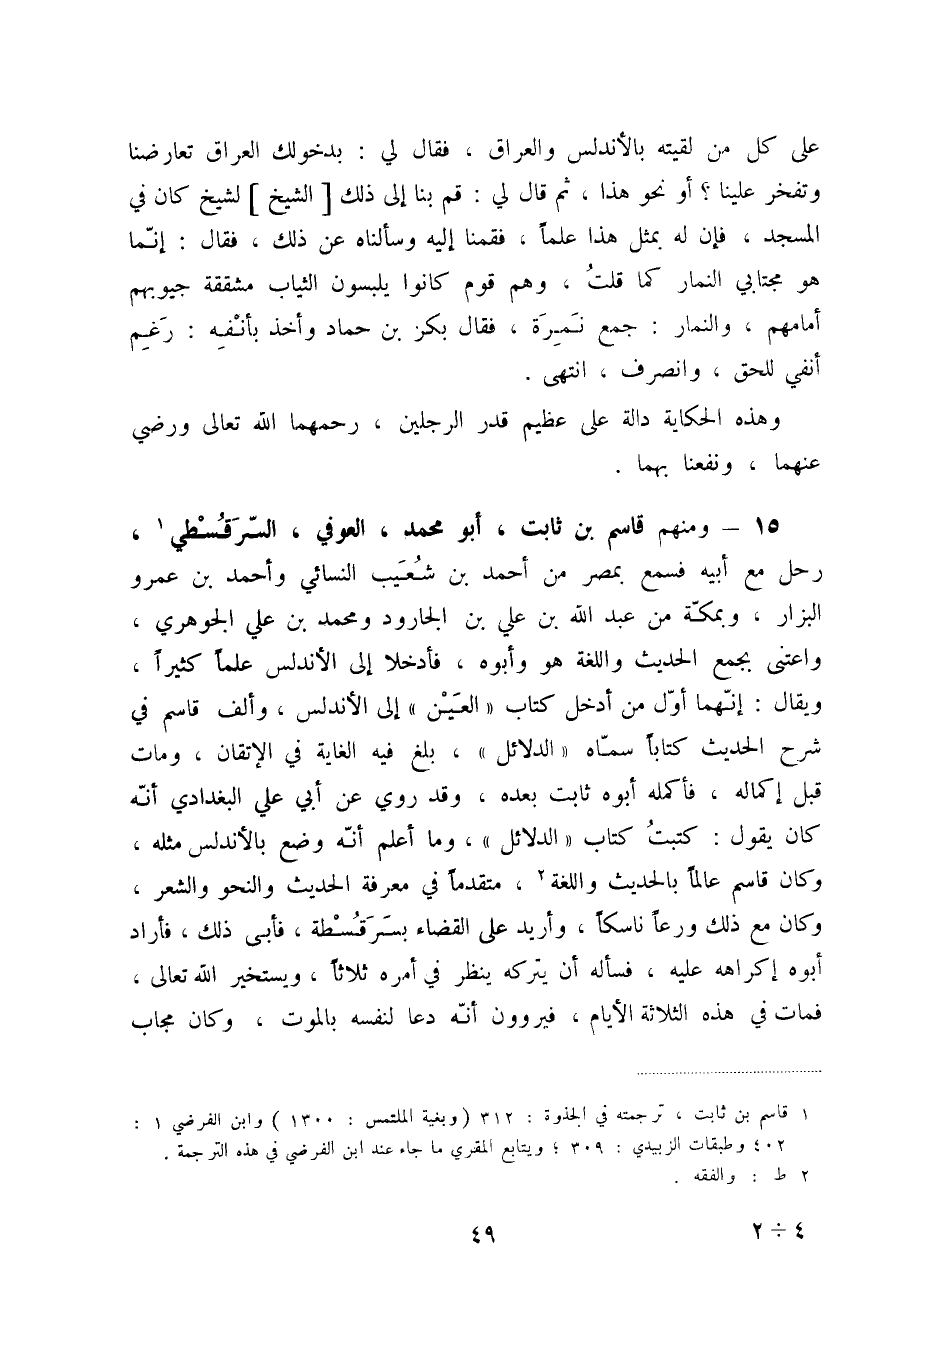 على كل من لقيته بالأندلس والعراق ، فقال لي : بدخولك العراق تعارضنا
وتفخر علينا ؟ أو نحو هذا ، ثم قال لي : قم بنا إلى ذلك [ الشيخ ] لشيخ كان في
المسجد ، فإن له بمثل هذا علماً ، فقمنا إليه وسألناه عن ذلك ، فقال : إنّما
هو مجتابي النمار كما قلتُ ، وهم قوم كانوا يلبسون الثياب مشققة جيوبهم
أمامهم ، والنمار : جمع نَمِرَة ، فقال بكر بن حماد وأخذ بأنْفِه : رَغِم
أنفي للحق ، وانصرف ، انتهى .
وهذه الحكاية دالة على عظيم قدر الرجلين ، رحمهما الله تعالى ورضي
عنهما ، ونفعنا بهما .
١٥ – ومنهم قاسم بن ثابت ، أبو محمد ، العوفي ، السّرَقُسْطي ١ ،
رحل مع أبيه فسمع بمصر من أحمد بن شُعَيب النسائي وأحمد بن عمرو
البزار ، وبمكّة من عبد الله بن علي بن الجارود ومحمد بن علي الجوهري ،
واعتنى بجمع الحديث واللغة هو وأبوه ، فأدخلا إلى الأندلس علماً كثيراً ،
ويقال : إنّهما أوّل من أدخل كتاب « العَيْن » إلى الأندلس ، وألف قاسم في
شرح الحديث كتاباً سمّاه « الدلائل » ، بلغ فيه الغاية في الإتقان ، ومات
قبل إكماله ، فأكمله أبوه ثابت بعده ، وقد روي عن أبي علي البغدادي أنّه
كان يقول : كتبتُ كتاب « الدلائل » ، وما أعلم أنّه وضع بالأندلس مثله ،
وكان قاسم عالماً بالحديث واللغة ٢ ، متقدماً في معرفة الحديث والنحو والشعر ،
وكان مع ذلك ورعاً ناسكاً ، وأريد على القضاء بسَرَقُسْطة ، فأبى ذلك ، فأراد
أبوه إكراهه عليه ، فسأله أن يتركه ينظر في أمره ثلاثاً ، ويستخير الله تعالى ،
فمات في هذه الثلاثة الأيام ، فيروون أنّه دعا لنفسه بالموت ، وكان مجاب
١ قاسم بن ثابت ، ترجمته في الجذوة : ٣١٢ ( وبغية الملتمس : ١٣٠٠ ) وابن الفرضي ١ :
٤٠٢ وطبقات الزبيدي : ٣٠٩ ؛ ويتابع المقري ما جاء عند ابن الفرضي في هذه الترجمة .
٢ ط : والفقه .
٤ ÷ ٢
٤٩